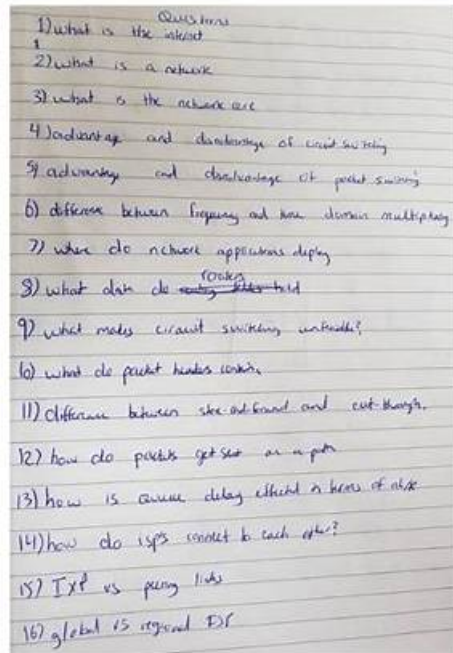 Questions
1) what is the internet
2) what is a network
3) what is the network core
4) advantage and disadvantage of circuit switching
5) advantage and disadvantage of packet switching
6) difference between frequency and time domain multiplexing
7) where do network applications deploy
8) what data do routers hold
9) what makes circuit switching unfeasible?
10) what do packet headers contain.
11) difference between store and forward and cut-through.
12) how do packets get sent on a path
13) how is queue delay effected in terms of
14) how do isps connect to each other?
15) IXP vs peering links
16) global vs regional ISP